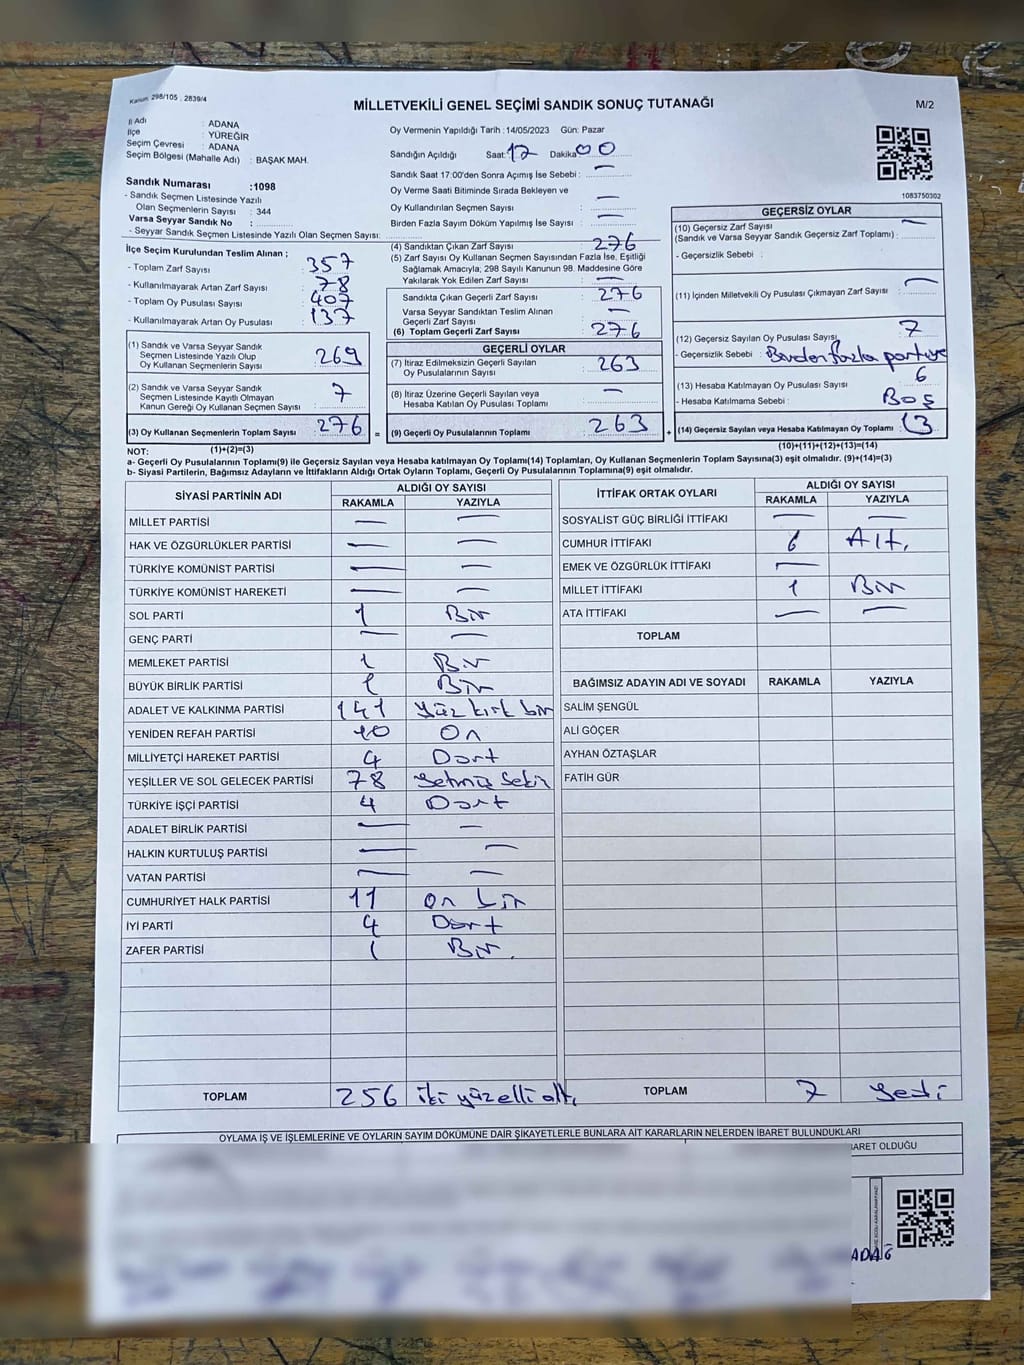 Kanun 298/105 , 2839/4
MİLLETVEKİLİ GENEL SEÇİMİ SANDIK SONUÇ TUTANAĞI
M/2
İl Adı : ADANA
İlçe : YÜREĞİR
Seçim Çevresi : ADANA
Seçim Bölgesi (Mahalle Adı) : BAŞAK MAH.
Sandık Numarası :1098
- Sandık Seçmen Listesinde Yazılı
Olan Seçmenlerin Sayısı : 344
Varsa Seyyar Sandık No :
- Seyyar Sandık Seçmen Listesinde Yazılı Olan Seçmen Sayısı:
Oy Vermenin Yapıldığı Tarih :14/05/2023 Gün: Pazar
Sandığın Açıldığı Saat: 17 Dakika 00
Sandık Saat 17:00'den Sonra Açımış İse Sebebi : —
Oy Verme Saati Bitiminde Sırada Bekleyen ve
Oy Kullandırılan Seçmen Sayısı : —
Birden Fazla Sayım Döküm Yapılmış İse Sayısı : —
1083750302
İlçe Seçim Kurulundan Teslim Alınan ;
- Toplam Zarf Sayısı : 357
- Kullanılmayarak Artan Zarf Sayısı : 78
- Toplam Oy Pusulası Sayısı : 407
- Kullanılmayarak Artan Oy Pusulası : 137
(1) Sandık ve Varsa Seyyar Sandık
Seçmen Listesinde Yazılı Olup
Oy Kullanan Seçmenlerin Sayısı 269
(2) Sandık ve Varsa Seyyar Sandık
Seçmen Listesinde Kayıtlı Olmayan
Kanun Gereği Oy Kullanan Seçmen Sayısı 7
(3) Oy Kullanan Seçmenlerin Toplam Sayısı 276 =
(4) Sandıktan Çıkan Zarf Sayısı : 276
(5) Zarf Sayısı Oy Kullanan Seçmen Sayısından Fazla İse, Eşitliği
Sağlamak Amacıyla; 298 Sayılı Kanunun 98. Maddesine Göre
Yakılarak Yok Edilen Zarf Sayısı : —
Sandıkta Çıkan Geçerli Zarf Sayısı : 276
Varsa Seyyar Sandıktan Teslim Alınan
Geçerli Zarf Sayısı : —
(6) Toplam Geçerli Zarf Sayısı : 276
GEÇERLİ OYLAR
(7) İtiraz Edilmeksizin Geçerli Sayılan
Oy Pusulalarının Sayısı : 263
(8) İtiraz Üzerine Geçerli Sayılan veya
Hesaba Katılan Oy Pusulası Toplamı : —
(9) Geçerli Oy Pusulalarının Toplamı : 263 +
GEÇERSİZ OYLAR
(10) Geçersiz Zarf Sayısı —
(Sandık ve Varsa Seyyar Sandık Geçersiz Zarf Toplamı) :
- Geçersizlik Sebebi :
(11) İçinden Milletvekili Oy Pusulası Çıkmayan Zarf Sayısı : —
(12) Geçersiz Sayılan Oy Pusulası Sayısı : 7
- Geçersizlik Sebebi : Birden fazla partiye
(13) Hesaba Katılmayan Oy Pusulası Sayısı : 6
- Hesaba Katılmama Sebebi : Boş
(14) Geçersiz Sayılan veya Hesaba Katılmayan Oy Toplamı : 13
NOT: (1)+(2)=(3) (10)+(11)+(12)+(13)=(14)
a- Geçerli Oy Pusulalarının Toplamı(9) ile Geçersiz Sayılan veya Hesaba Katılmayan Oy Toplamı(14) Toplamları, Oy Kullanan Seçmenlerin Toplam Sayısına(3) eşit olmalıdır. (9)+(14)=(3)
b- Siyasi Partilerin, Bağımsız Adayların ve İttifakların Aldığı Ortak Oyların Toplamı, Geçerli Oy Pusulalarının Toplamına(9) eşit olmalıdır.
SİYASİ PARTİNİN ADI ALDIĞI OY SAYISI
RAKAMLA YAZIYLA
MİLLET PARTİSİ — —
HAK VE ÖZGÜRLÜKLER PARTİSİ — —
TÜRKİYE KOMÜNİST PARTİSİ — —
TÜRKİYE KOMÜNİST HAREKETİ — —
SOL PARTİ 1 Bir
GENÇ PARTİ — —
MEMLEKET PARTİSİ 1 Bir
BÜYÜK BİRLİK PARTİSİ 1 Bir
ADALET VE KALKINMA PARTİSİ 141 Yüz kırk bir
YENİDEN REFAH PARTİSİ 10 On
MİLLİYETÇİ HAREKET PARTİSİ 4 Dört
YEŞİLLER VE SOL GELECEK PARTİSİ 78 Yetmiş Sekiz
TÜRKİYE İŞÇİ PARTİSİ 4 Dört
ADALET BİRLİK PARTİSİ — —
HALKIN KURTULUŞ PARTİSİ — —
VATAN PARTİSİ — —
CUMHURİYET HALK PARTİSİ 11 On bir
İYİ PARTİ 4 Dört
ZAFER PARTİSİ 1 Bir.
TOPLAM 256 iki yüz elli altı
İTTİFAK ORTAK OYLARI ALDIĞI OY SAYISI
RAKAMLA YAZIYLA
SOSYALİST GÜÇ BİRLİĞİ İTTİFAKI — —
CUMHUR İTTİFAKI 6 Altı
EMEK VE ÖZGÜRLÜK İTTİFAKI —
MİLLET İTTİFAKI 1 Bir
ATA İTTİFAKI — —
TOPLAM
BAĞIMSIZ ADAYIN ADI VE SOYADI RAKAMLA YAZIYLA
SALİM ŞENGÜL
ALİ GÖÇER
AYHAN ÖZTAŞLAR
FATİH GÜR
TOPLAM 7 Yedi
OYLAMA İŞ VE İŞLEMLERİNE VE OYLARIN SAYIM DÖKÜMÜNE DAİR ŞİKAYETLERLE BUNLARA AİT KARARLARIN NELERDEN İBARET BULUNDUKLARI
BARET OLDUĞU
ADAĞ